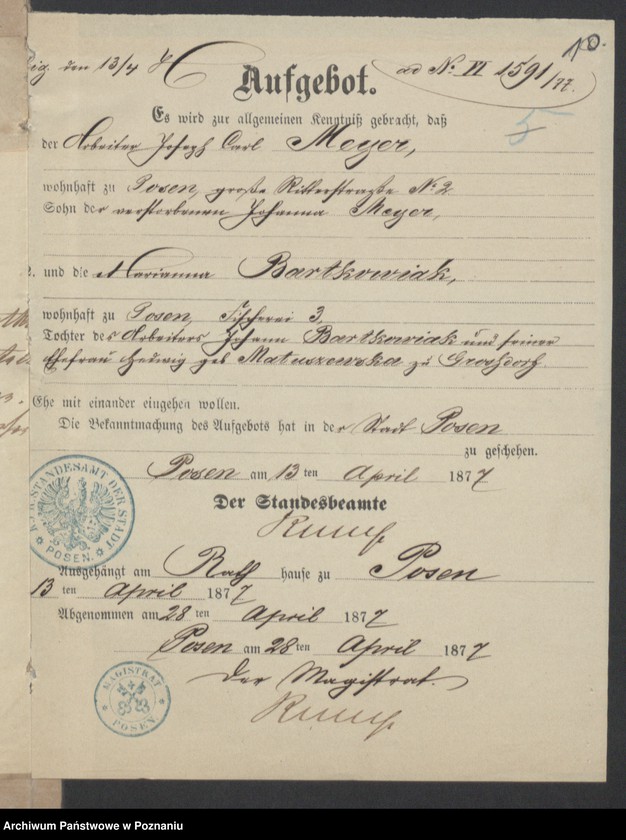 10.
den 13/4
ad No VI 1591/77.
Aufgebot.
5
Es wird zur allgemeinen Kenntniß gebracht, daß
der Arbeiter Joseph Carl Meyer,
wohnhaft zu Posen, große Ritterstraße No 2
Sohn der verstorbenen Johanna Meyer,
2. und die Marianna Bartkowiak,
wohnhaft zu Posen, Fischerei 3
Tochter des Arbeiters Johann Bartkowiak und seiner
Ehefrau Hedwig geb Matuszewska zu Grosdorf
Ehe mit einander eingehen wollen.
Die Bekanntmachung des Aufgebots hat in der Stadt Posen
zu geschehen.
Posen am 13 ten April 1877
Der Standesbeamte
STANDESAMT DER STADT POSEN.
Ausgehängt am Rath hause zu Posen
13 ten April 1877
Abgenommen am 28 ten April 1877
Posen am 28 ten April 1877
Der Magistrat.
MAGISTRAT POSEN.
Archiwum Państwowe w Poznaniu